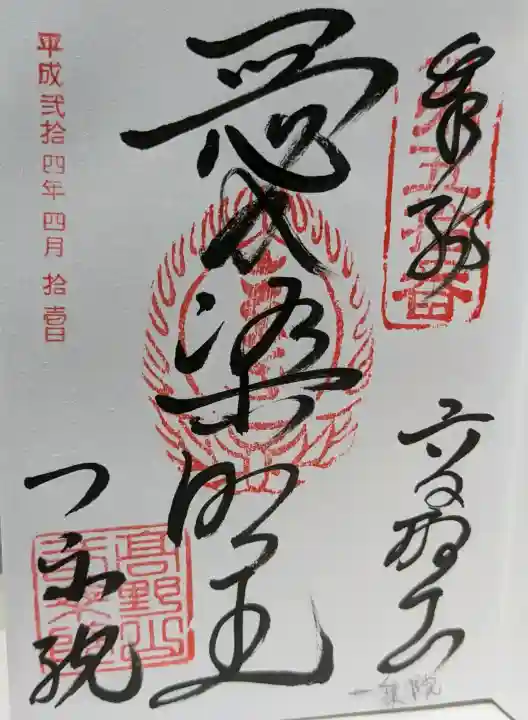 奉拝
高野山
愛染明王
一乗院
平成弐拾四年四月拾壹日
高野山
一乗院